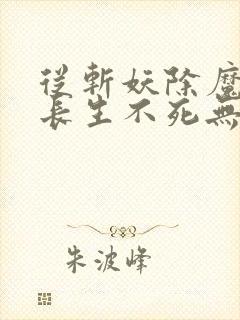 從斬妖除魔
長生不死無
朱波峰